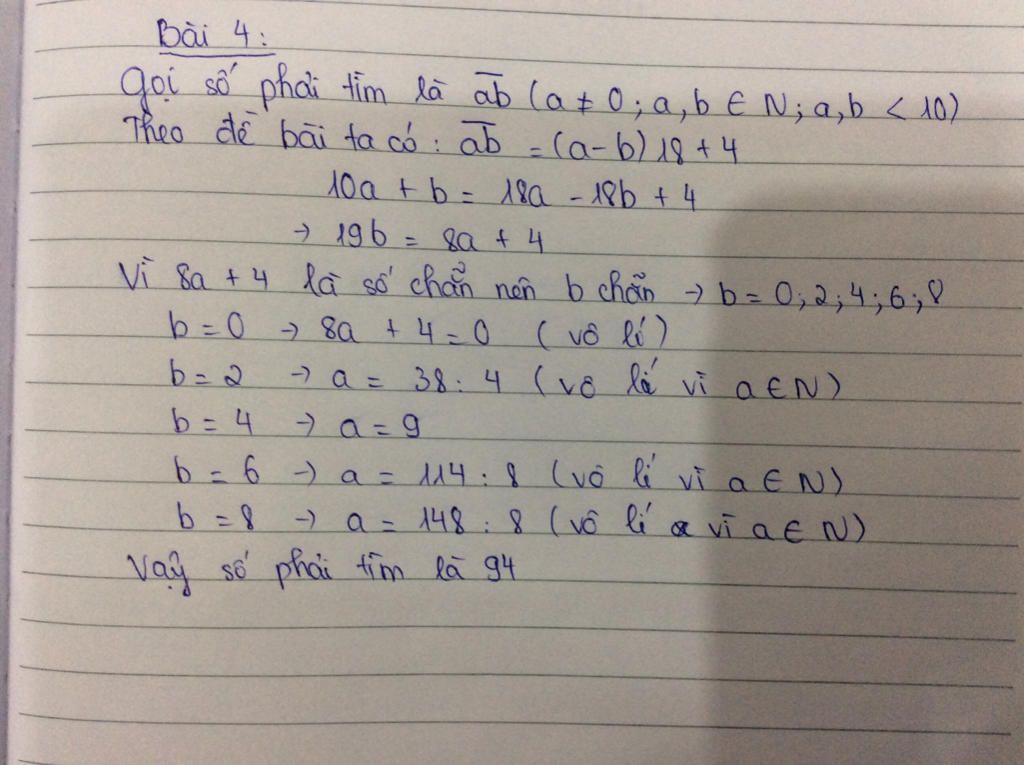 Bài 4:
Gọi số phải tìm là ab̅ (a ≠ 0; a, b ∈ N; a, b < 10)
Theo đề bài ta có: ab̅ = (a-b) 18 + 4
10a + b = 18a - 18b + 4
→ 19b = 8a + 4
Vì 8a + 4 là số chẵn nên b chẵn → b = 0; 2; 4; 6; 8
b = 0 → 8a + 4 = 0 (vô lí)
b = 2 → a = 38 : 4 (vô lí vì a ∈ N)
b = 4 → a = 9
b = 6 → a = 114 : 8 (vô lí vì a ∈ N)
b = 8 → a = 148 : 8 (vô lí vì a ∈ N)
Vậy số phải tìm là 94